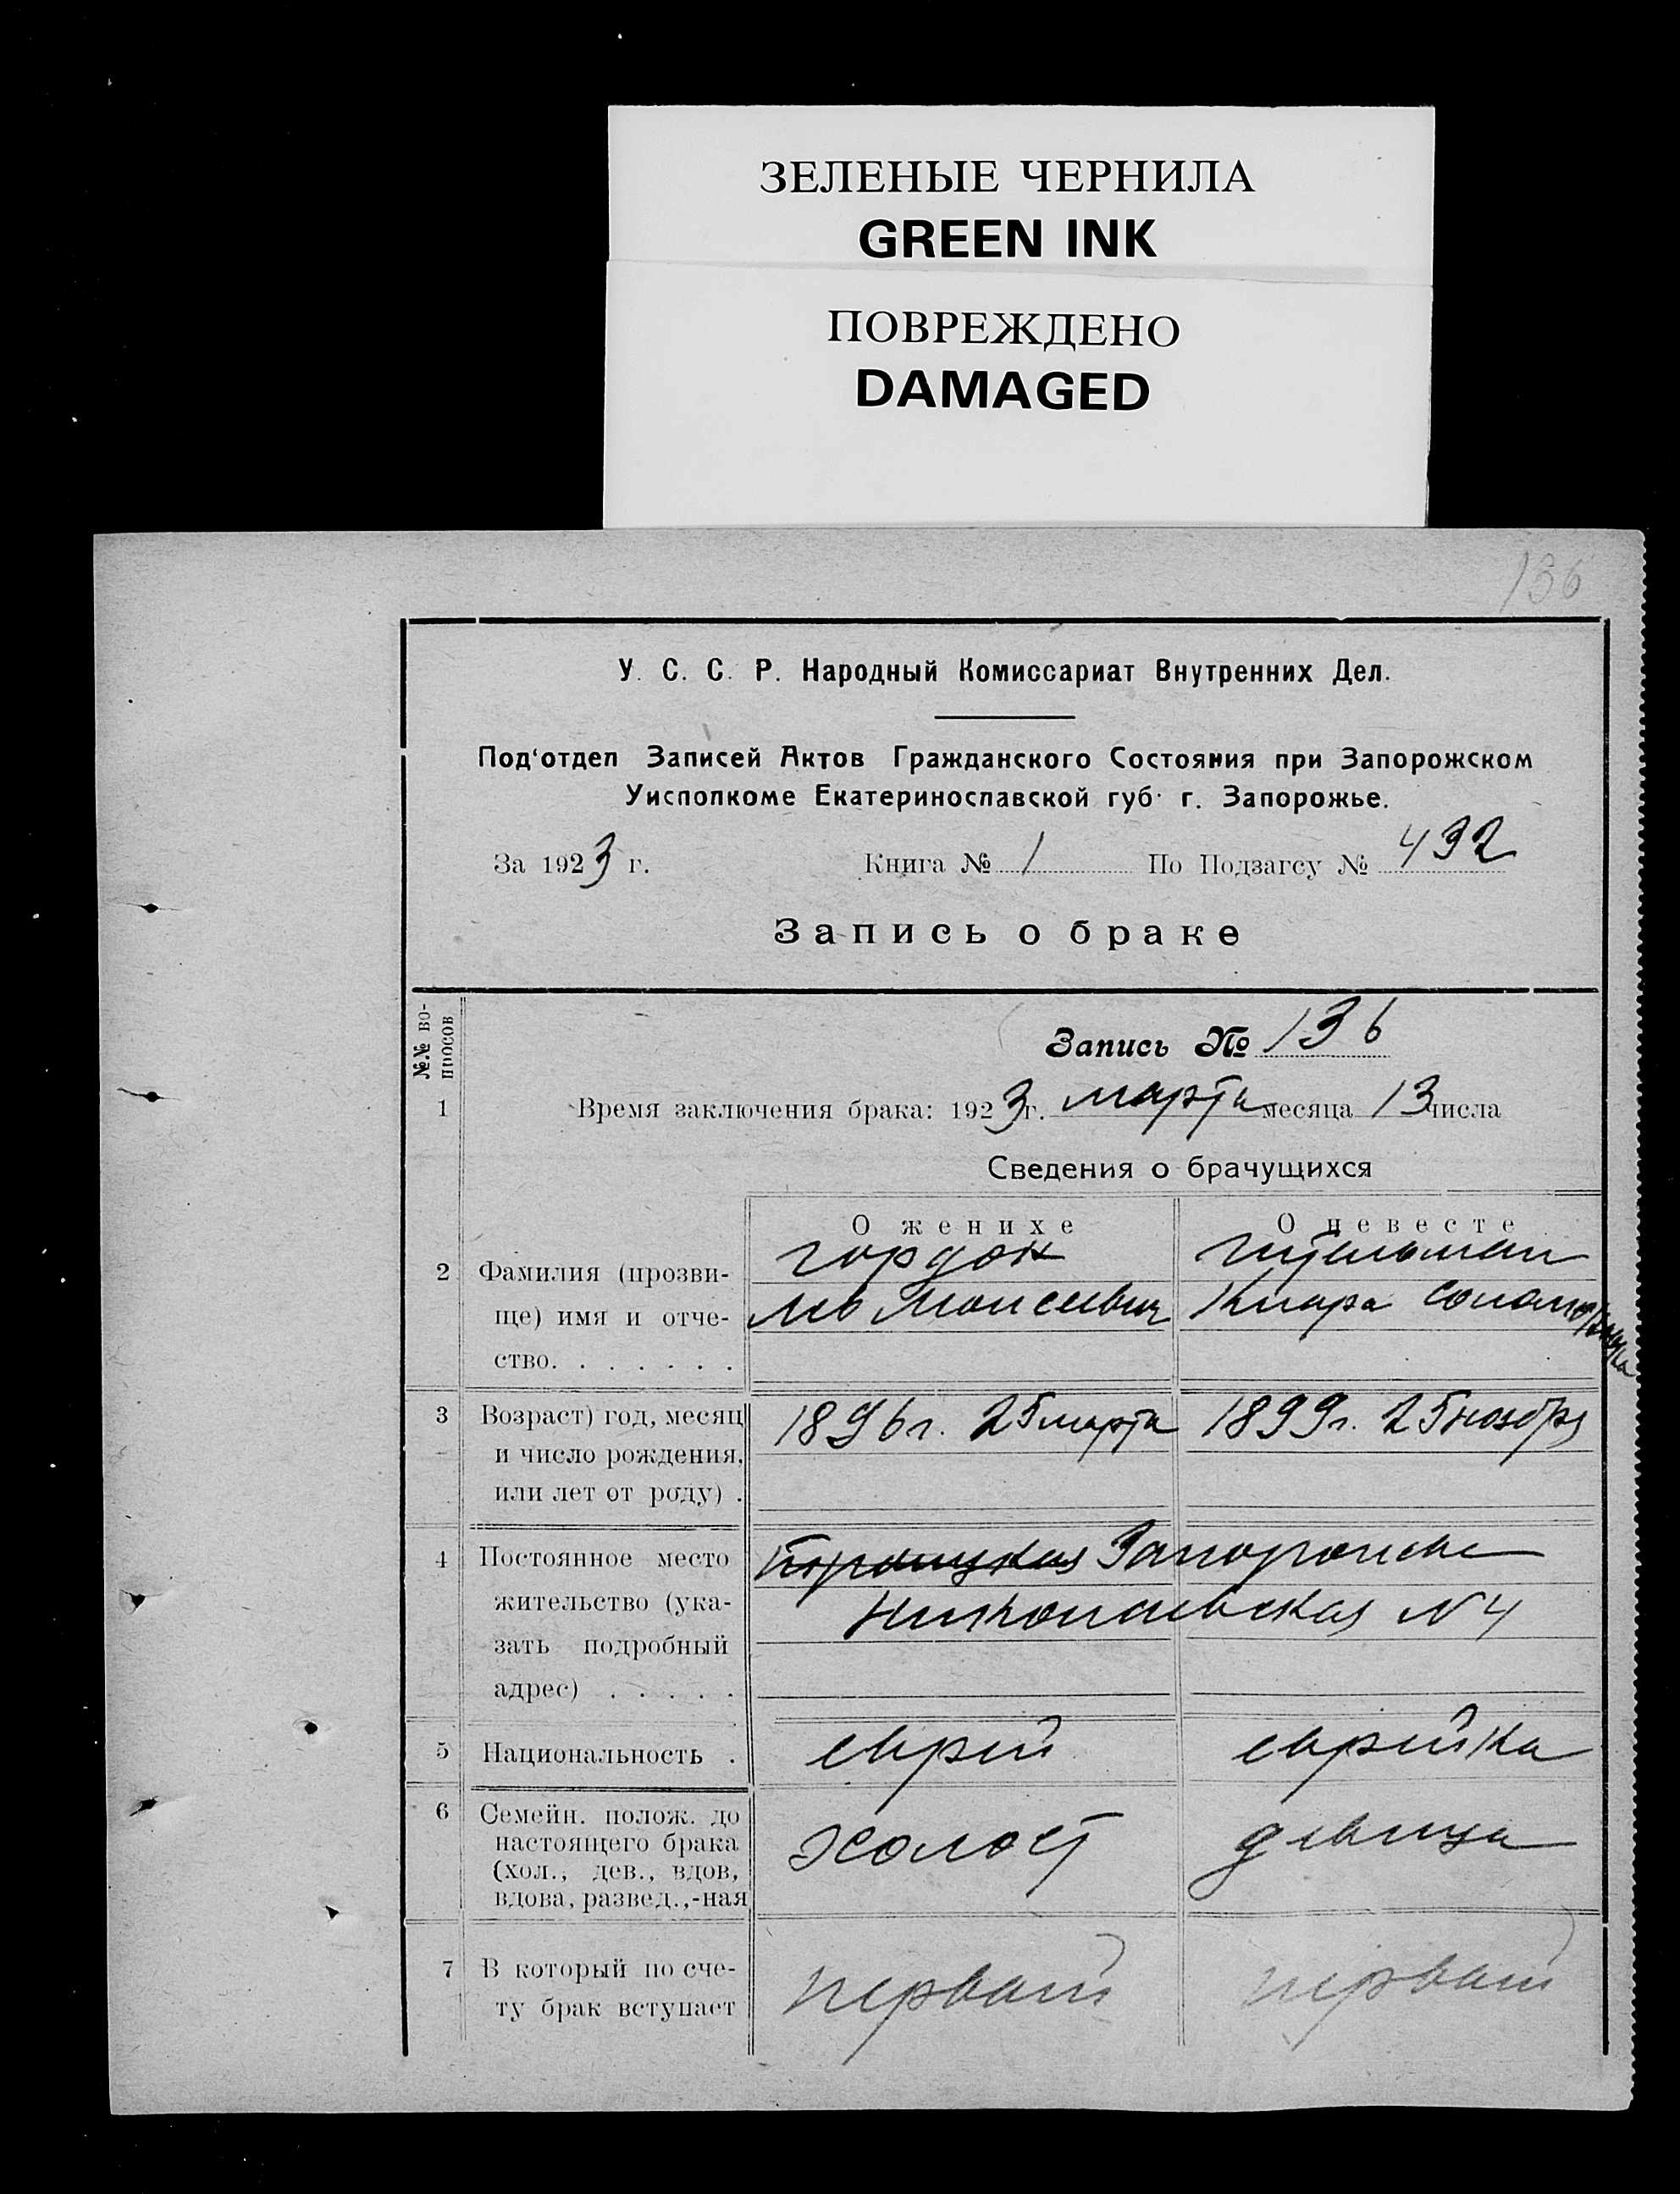 ЗЕЛЕНЫЕ ЧЕРНИЛА
GREEN INK
ПОВРЕЖДЕНО
DAMAGED
136
У. С. С. Р. Народный Комиссариат Внутренних Дел.
Под'отдел Записей Актов Гражданского Состояния при Запорожском
Уисполкоме Екатеринославской губ. г. Запорожье.
За 1923 г. Книга № 1 По Подзагсу № 432
Запись о браке
№№ во-
просов
Запись № 136
1 Время заключения брака: 1923 г. марта месяца 13 числа
Сведения о брачущихся
О женихе О невесте
2 Фамилия (прозви- Гордон
ще) имя и отче- Лев Моисеевич Клара Соломоновна
ство. . . . . . .
3 Возраст) год, месяц 1896 г. 25 марта 1899 г. 25 ноября
и число рождения,
или лет от роду) .
4 Постоянное место Запорожье
жительство (ука- Николаевская N 4
зать подробный
адрес) . . . . .
5 Национальность . еврей еврейка
6 Семейн. полож. до
настоящего брака холост девица
(хол., дев., вдов,
вдова, развед.,-ная
7 В который по сче- первый первый
ту брак вступает